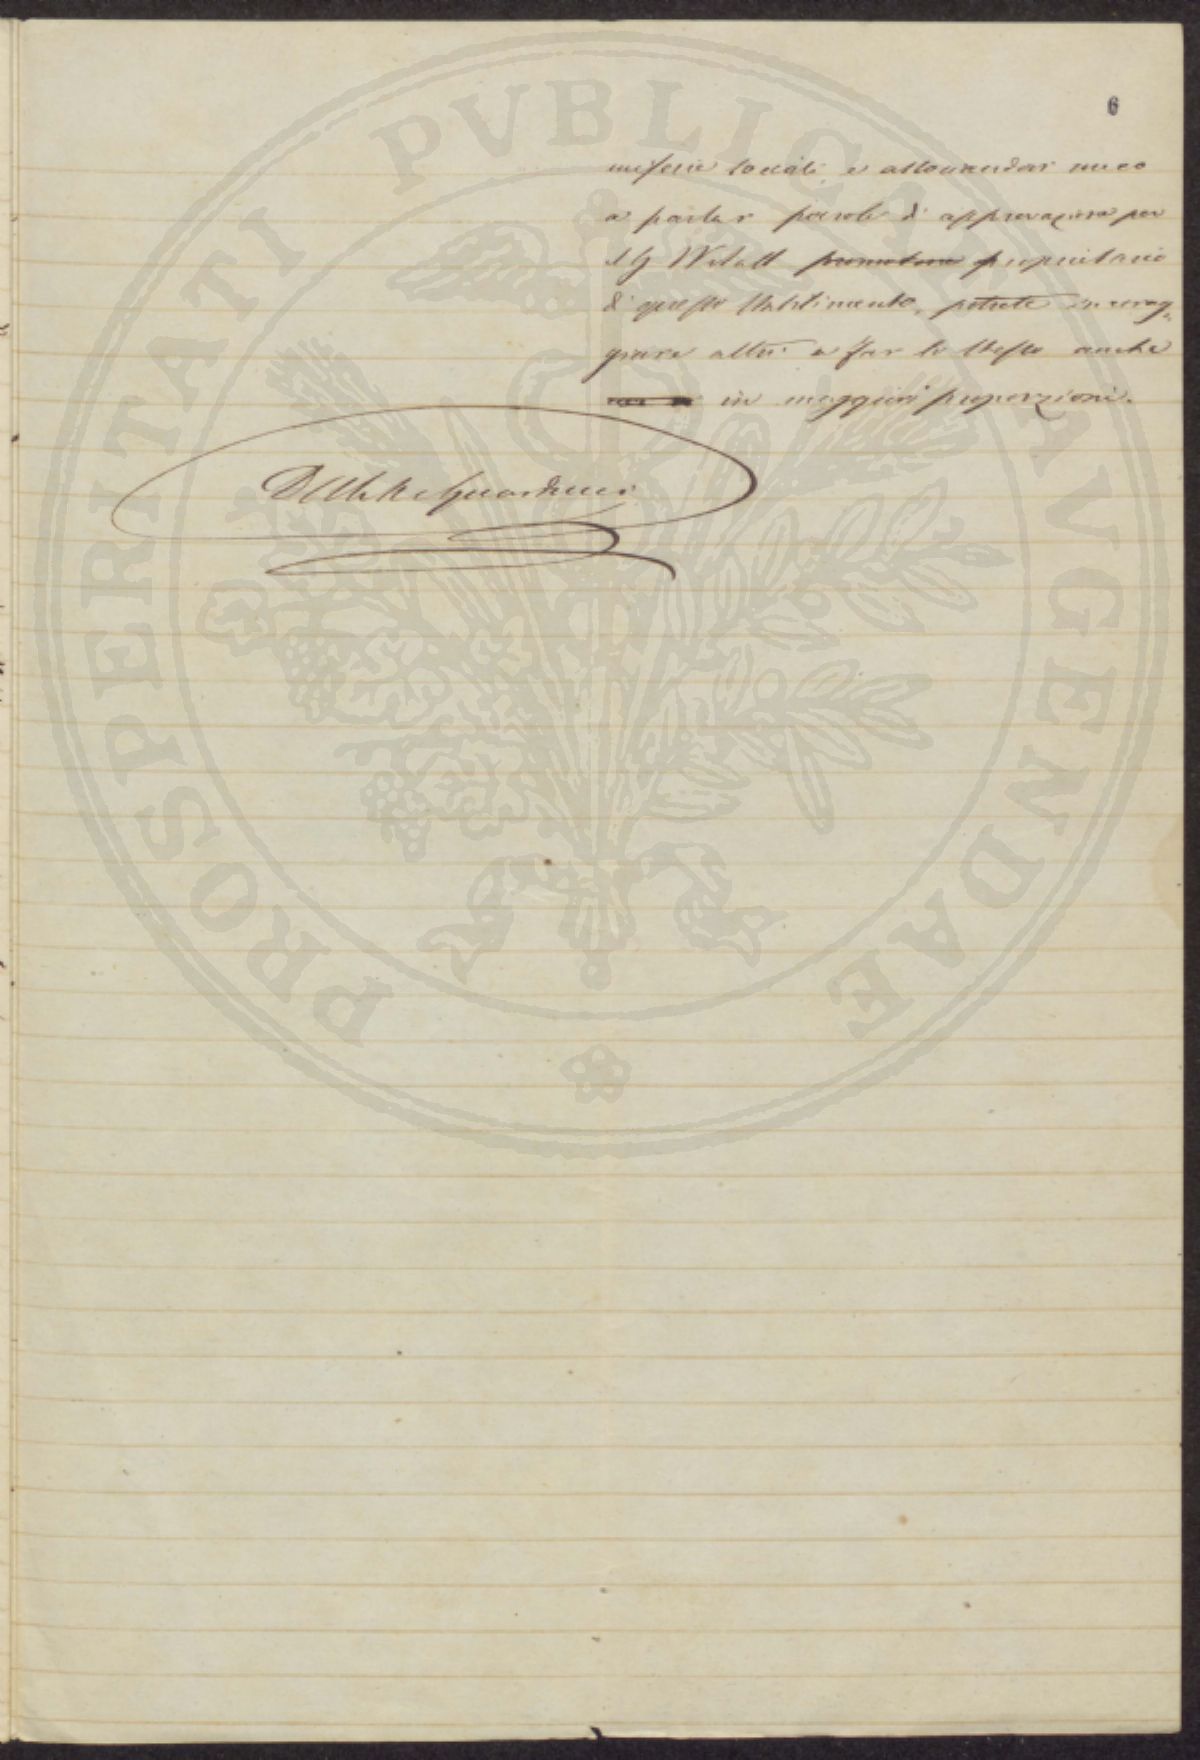 6
miserie sociali, e associandovi meco
a parlar parole di approvazione per
il Sg promotore proprietario
di questo Stabilimento, potrete incorag-
giare altri a far lo stesso anche
in maggiori proporzioni.
Guarducci
PROSPERITATI PVBLICAE AVGENDAE